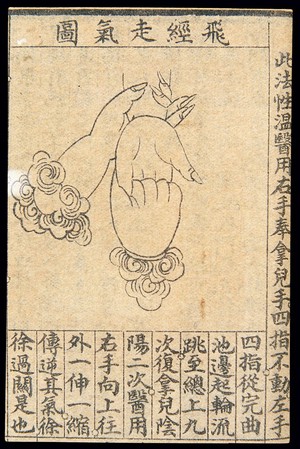 飛經走氣圖
此法性温醫用右手奉拿兒手四指不動左手
四指從完曲
池邊起輪流
跳至總上九
次復拿兒陰
陽二次醫用
右手向上往
外一伸一縮
傳逆其氣徐
徐過關是也